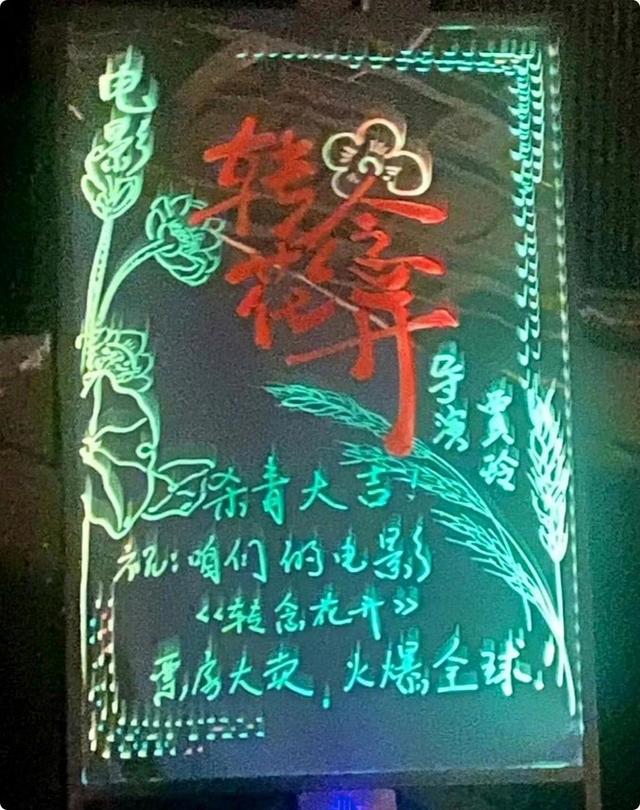 电影
转念
花开
导演
贾玲
杀青大吉！
祝：咱们的电影
《转念花开》
票房大卖，火爆全球！